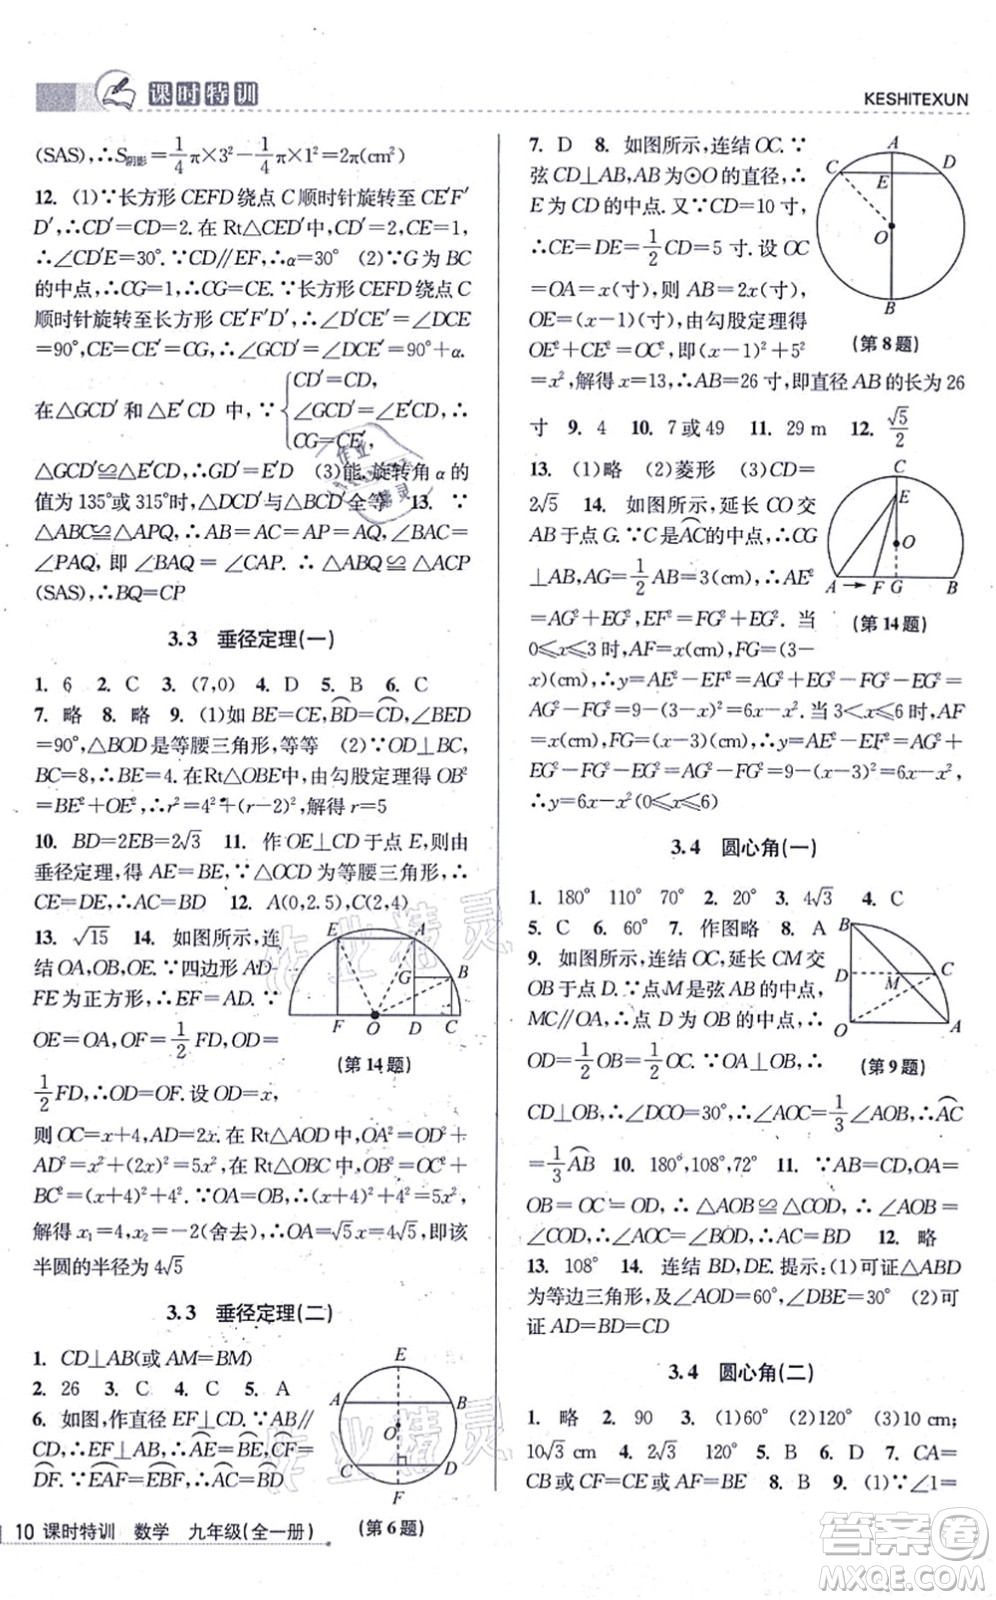 课时特训
KESHITEXUN
(SAS),∴S阴影=1/4π×3²-1/4π×1²=2π(cm²)
12. (1)∵长方形 CEFD 绕点 C 顺时针旋转至 CE′F′
D′,∴CD′=CD=2. 在 Rt△CED′中,CD′=2,CE=1,
∴∠CD′E=30°. ∵CD∥EF,∴α=30° (2)∵G 为 BC
的中点,∴CG=1,∴CG=CE. ∵长方形 CEFD 绕点 C
顺时针旋转至长方形 CE′F′D′,∴∠E′CD′=∠DCE
=90°,CE=CE′=CG,∴∠GCD′=∠DCE′=90°+α.
在△GCD′和△E′CD 中,∵{CD′=CD,
∠GCD′=∠E′CD,∴
CG=CE′,
△GCD′≌△E′CD(SAS),∴GD′=E′D (3)能. 旋转角 α 的
值为 135°或 315°时,△DCD′与△BCD′全等 13. ∵
△ABC≌△APQ,∴AB=AC=AP=AQ,∠BAC=
∠PAQ, 即 ∠BAQ = ∠CAP. ∴ △ABQ ≌ △ACP
(SAS),∴BQ=CP
3.3 垂径定理(一)
1. 6 2. C 3. (7,0) 4. D 5. B 6. C
7. 略 8. 略 9. (1)如 BE=CE,BD=CD,∠BED
=90°,△BOD 是等腰三角形,等等 (2)∵OD⊥BC,
BC=8,∴BE=4. 在 Rt△OBE 中,由勾股定理得 OB²
=BE²+OE²,∴r²=4²+(r-2)²,解得 r=5
10. BD=2EB=2√3 11. 作 OE⊥CD 于点 E,则由
垂径定理,得 AE=BE,∵△OCD 是等边三角形,∴
CE=DE,∴AC=BD 12. A(0,2.5),C(2,4)
13. √15 14. 如图所示,连
结 OA,OB,OE. ∵四边形 AD-
FE 为正方形,∴EF=AD. ∵
OE=OA,OF=1/2 FD,∴OD=
1/2 FD,∴OD=OF. 设 OD=x,
E A G B F O D C
(第 14 题)
则 OC=x+4,AD=2x. 在 Rt△AOD 中,OA²=OD²+
AD²=x²+(2x)²=5x². 在 Rt△OBC 中,OB²=OC²+
BC²=(x+4)²+4². ∵OA=OB,∴(x+4)²+4²=5x²,
解得 x₁=4,x₂=-2(舍去),∴OA=√5x=4√5,即该
半圆的半径为 4√5
3.3 垂径定理(二)
1. CD⊥AB(或 AM=BM)
2. 26 3. C 4. C 5. A
6. 如图,作直径 EF⊥CD. ∵AB∥
CD,∴EF⊥AB,∴AE=BE,CF=
DF. ∵EAF=EBF,∴AC=BD
E A B O C D F
(第 6 题)
7. D 8. 如图所示,连结 OC. ∵
弦 CD⊥AB,AB 为⊙O 的直径,∴
E 为 CD 的中点. 又∵CD=10 寸,
∴CE=DE=1/2 CD=5 寸. 设 OC
=OA=x(寸),则 AB=2x(寸),
OE=(x-1)(寸),由勾股定理得
OE²+CE²=OC²,即(x-1)²+5²
=x²,解得 x=13,∴AB=26 寸,即直径 AB 的长为 26
A C D E O B
(第 8 题)
寸 9. 4 10. 7 或 49 11. 29 m 12. √5/2
13. (1)略 (2)菱形 (3)CD=
2√5 14. 如图所示,延长 CO 交
AB 于点 G. ∵C 是AC的中点,∴CG
⊥AB,AG=1/2 AB=3(cm),∴AE²
=AG²+EG²,EF²=FG²+EG². 当
0≤x≤3 时,AF=x(cm),FG=(3-
x)(cm),∴y=AE²-EF²=AG²+
C E O A F G B
(第 14 题)
EG²-FG²-EG²=9-(3-x)²=6x-x²;当 3<x≤6 时,AF
=x(cm),FG=(x-3)(cm),∴y=AE²-EF²=AG²+
EG²-FG²-EG²=AG²-FG²=9-(x-3)²=6x-x²,
∴y=6x-x²(0≤x≤6)
3.4 圆心角(一)
1. 180° 110° 70° 2. 20° 3. 4√3 4. C
5. C 6. 60° 7. 作图略 8. A
9. 如图所示,连结 OC,延长 CM 交
OB 于点 D. ∵点 M 是弦 AB 的中点,
MC∥OA,∴点 D 为 OB 的中点,∴
OD=1/2 OB=1/2 OC. ∵OA⊥OB,∴
B D M C O A
(第 9 题)
CD⊥OB,∴∠DCO=30°,∴∠AOC=1/3∠AOB,∴AC
=1/3 AB 10. 180°,108°,72° 11. ∵AB=CD,OA=
OB = OC = OD, ∴ △AOB ≌ △COD, ∴ ∠AOB =
∠COD,∴∠AOC=∠BOD,∴AC=BD 12. 略
13. 108° 14. 连结 BD,DE. 提示:(1)可证△ABD
为等边三角形,∴∠AOD=60°,∠DBE=30° (2)可
证 AD=BD=CD
3.4 圆心角(二)
1. 略 2. 90 3. (1)60° (2)120° (3)10 cm;
10√3 cm 4. 2√3 120° 5. B 6. D 7. CA=
CB 或 CF=CE 或 AF=BE 8. B 9. (1)∵∠1=
10 课时特训 数学 九年级(全一册)
答案圈
MXQE.COM